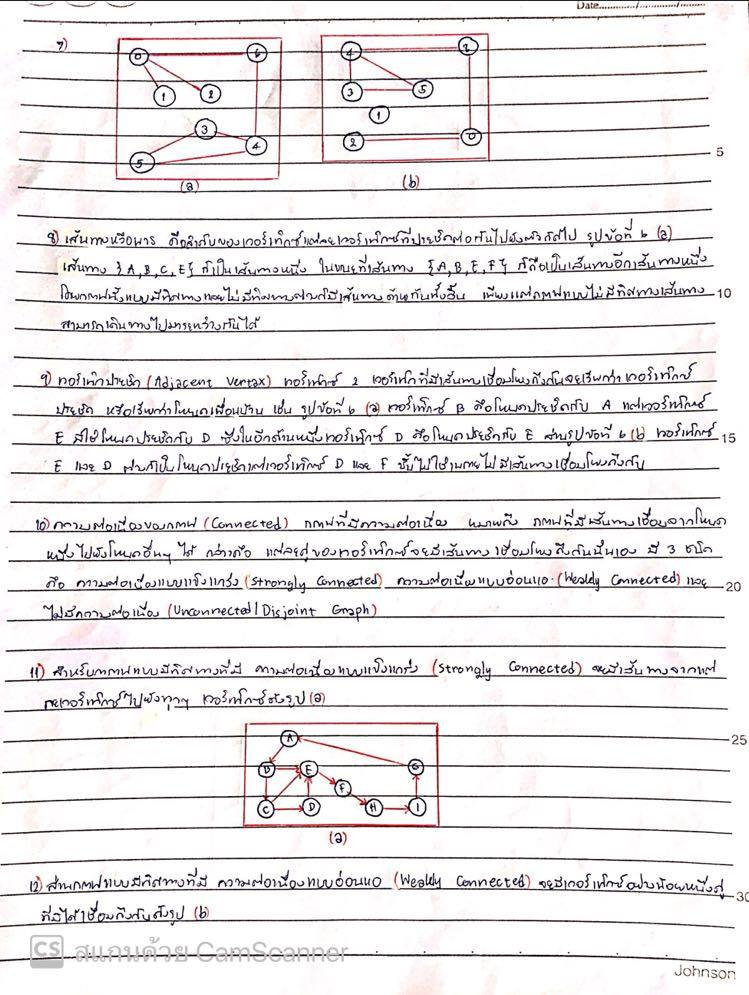 Date............../................/............
7)
0 6
1 2
3
4
5
(a)
4 6
3 5
1
2 0
(b)
5
8) เส้นทางหรือพาธ คือลำดับของเวอร์เท็กซ์แต่ละเวอร์เท็กซ์ที่ประชิดต่อกันไปยังตัวถัดไป รูปข้อที่ 6 (a)
เส้นทาง {A, B, C, E} ก็เป็นเส้นทางหนึ่ง ในขณะที่เส้นทาง {A, B, E, F} ก็ถือเป็นเส้นทางอีกเส้นทางหนึ่ง
โดยกราฟทั้งแบบมีทิศทางและไม่มีทิศทางต่างก็มีเส้นทางด้วยกันทั้งสิ้น เพียงแต่กราฟแบบไม่มีทิศทางเส้นทาง
10
สามารถเดินทางไปมาระหว่างกันได้
9) เวอร์เท็กซ์ประชิด (Adjacent Vertex) เวอร์เท็กซ์ 2 เวอร์เท็กที่มีเส้นทางเชื่อมโยงถึงกันจะเรียกว่า เวอร์เท็กซ์
ประชิด หรือเรียกว่าโหนดเพื่อนบ้าน เช่น รูปข้อที่ 6 (a) เวอร์เท็กซ์ B คือโหนดประชิดกับ A แต่เวอร์เท็กซ์
E มิใช่โหนดประชิดกับ D ซึ่งในอีกด้านหนึ่งเวอร์เท็กซ์ D คือโหนดประชิดกับ E ส่วนรูปข้อที่ 6 (b) เวอร์เท็กซ์
15
E และ D ต่างก็เป็นโหนดประชิดแต่เวอร์เท็กซ์ D และ F นั้นไม่ใช่เพราะไม่มีเส้นทางเชื่อมโยงถึงกัน
10) ความต่อเนื่องของกราฟ (Connected) กราฟที่มีความต่อเนื่อง หมายถึง กราฟที่มีเส้นทางเชื่อมจากโหนด
หนึ่งไปยังโหนดอื่นๆ ได้ กล่าวคือ แต่ละคู่ของเวอร์เท็กซ์จะมีเส้นทางเชื่อมโยงถึงกันนั่นเอง มี 3 ชนิด
คือ ความต่อเนื่องแบบแข็งแกร่ง (Strongly Connected) ความต่อเนื่องแบบอ่อนแอ (Weakly Connected) และ
20
ไม่มีความต่อเนื่อง (Unconnected/Disjoint Graph)
11) สำหรับกราฟแบบมีทิศทางที่มี ความต่อเนื่องแบบแข็งแกร่ง (Strongly Connected) จะมีเส้นทางจากแต่
ละเวอร์เท็กซ์ไปยังทุกๆ เวอร์เท็กซ์ดังรูป (a)
25
A
B E G
F
C D H I
(a)
12) ส่วนกราฟแบบมีทิศทางที่มี ความต่อเนื่องแบบอ่อนแอ (Weakly Connected) จะมีเวอร์เท็กซ์อย่างน้อยหนึ่งคู่
30
ที่มิได้เชื่อมถึงกันดังรูป (b)
CS สแกนด้วย CamScanner
Johnson